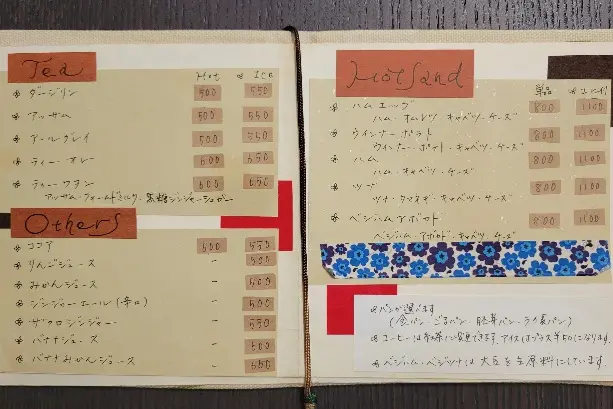 Tea
Hot ※ ICE
※ ダージリン 500 550
※ アッサム 500 550
※ アールグレイ 500 550
※ ティー・オレー 600 650
※ ティーワタン 600 650
アッサム・フォームドミルク・黒糖ジンジャーシュガー
Others
※ ココア 500 550
※ りんごジュース - 500
※ みかんジュース - 500
※ ジンジャーエール(辛口) - 500
※ ザクロジンジャー - 550
※ バナナジュース - 500
※ バナナみかんジュース - 500
Hot Sand
単品
※ ハムエッグ 800 1100
ハム・オムレツ・キャベツ・チーズ
※ ウインナーポテト 800 1100
ウインナー・ポテト・キャベツ・チーズ
※ ハム 800 1100
ハム・キャベツ・チーズ
※ ツナ 800 1100
ツナ・タマネギ・キャベツ・チーズ
※ ベジハムアボカド 800 1100
ベジハム・アボカド・キャベツ・チーズ
※パンが選べます
(食パン・ごまパン・胚芽パン・ライ麦パン)
※コーヒーは紅茶に変更できます。アイスはプラス¥50になります。
※ベジハム・ベジツナは大豆を主原料にしています。